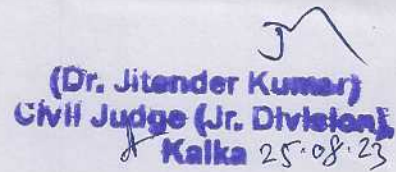 (Dr. Jitender Kumar)
Civil Judge (Jr. Division),
Kalka 25.08.23